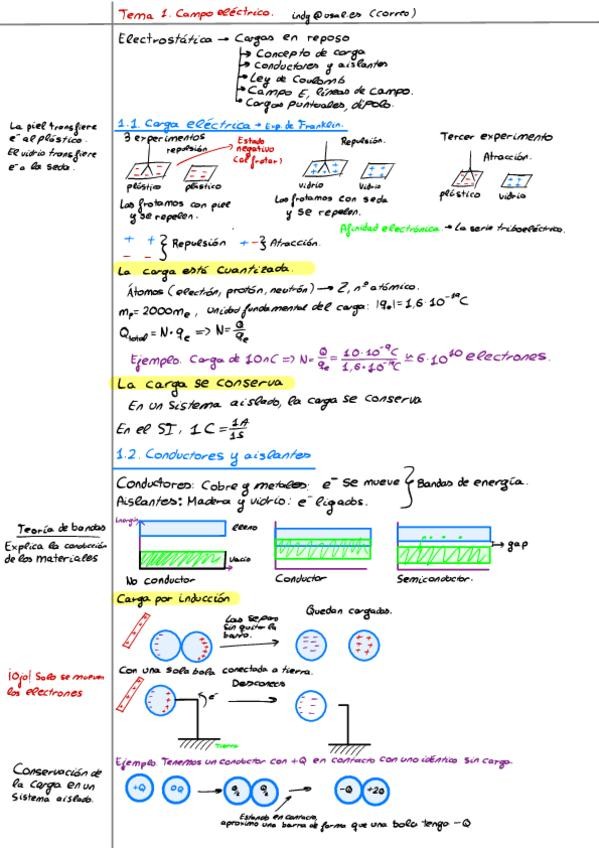 Tema 1. Campo eléctrico. indy@usal.es (correo)
Electrostática → Cargas en reposo
→ Concepto de carga
→ Conductores y aislantes
→ Ley de Coulomb
→ Campo E, líneas de campo.
→ Cargas puntuales, dipolo.
La piel transfiere
e⁻ al plástico.
El vidrio transfiere
e⁻ a la seda.
1.1. Carga eléctrica → Exp. de Franklin.
3 experimentos
repulsión
Estado
negativo
(al frotar)
plástico
plástico
Los frotamos con piel
y se repelen.
Repulsión.
vidrio
Vidrio
Los frotamos con seda
y se repelen.
Tercer experimento
Atracción.
plástico
vidrio
Afinidad electrónica → La serie triboeléctrica.
+ +
- -
} Repulsión
+ - } Atracción.
La carga está cuantizada.
Átomos (electrón, protón, neutrón) → Z, nº atómico.
mₚ = 2000mₑ, unidad fundamental del carga: |qₑ| = 1,6·10⁻¹⁹C
Qtotal = N·qₑ => N = Q/qₑ
Ejemplo. Carga de 10nC => N = Q/qₑ = 10·10⁻⁹C/1,6·10⁻¹⁹C ≃ 6·10¹⁰ electrones.
La carga se conserva
En un sistema aislado, la carga se conserva
En el SI, 1C = 1A/1S
1.2. Conductores y aislantes
Conductores: Cobre y metales: e⁻ se mueve
Aislantes: Madera y vidrio: e⁻ ligados.
} Bandas de energía.
Teoría de bandas
Explica la conducción
de los materiales
Energía
lleno
Vacío
No conductor
Conductor
gap
Semiconductor.
Carga por inducción
Las separo
sin quitar la
barra.
Quedan cargados.
¡Ojo! Solo se mueven
los electrones
Con una sola bola conectada a tierra.
e⁻
Desconecto
Tierra
Conservación de
la carga en un
sistema aislado.
Ejemplo. Tenemos un conductor con +Q en contacto con uno idéntico sin carga.
+Q
0Q
Q/2
Q/2
-Q
+2Q
Estando en contacto,
aproximo una barra de forma que una bola tenga -Q